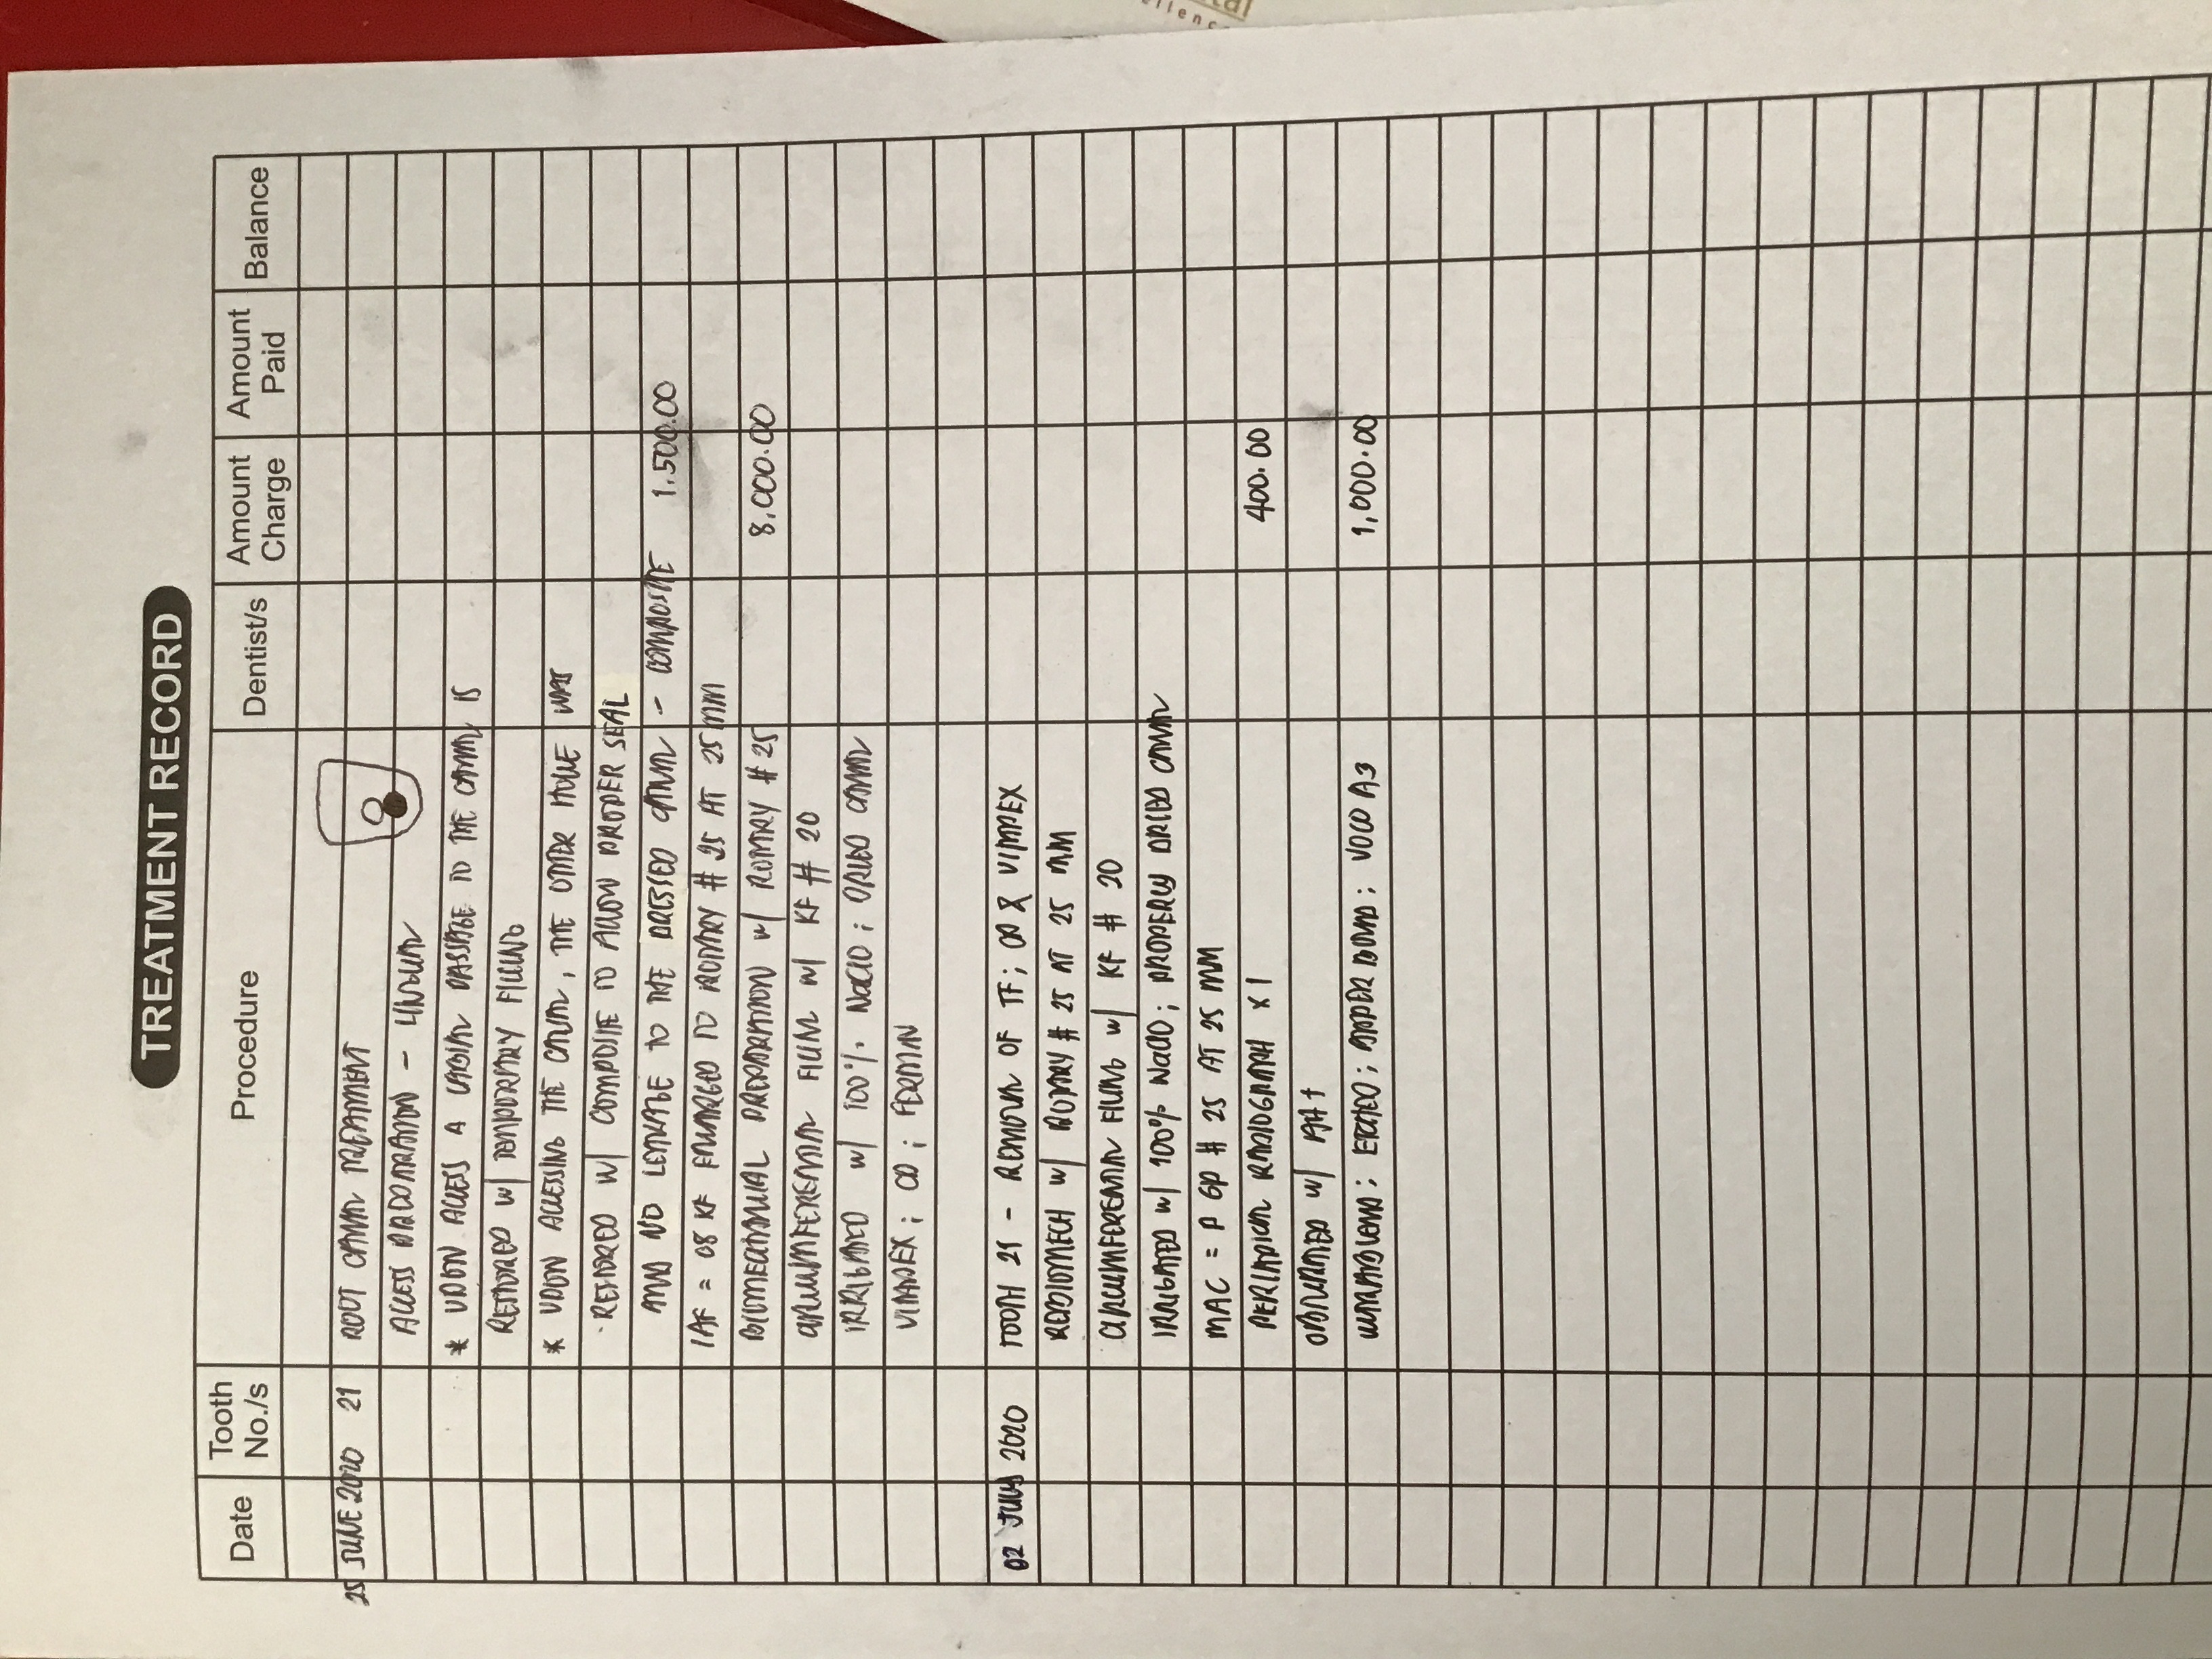 TREATMENT RECORD
Date Tooth No./s Procedure Dentist/s Amount Charge Amount Paid Balance
25 JUNE 2020 21 ROOT CANAL TREATMENT
ACCESS PREPARATION - LINGUAL
* UPON ACCESS A PASSAGE TO THE CANAL IS
RESTORED w/ TEMPORARY FILLING
* UPON ACCESSING THE CANAL, THE OTHER HOLE WAS
RESTORED w/ COMPOSITE TO ALLOW PROPER SEAL
AND NO LEAKAGE TO THE DRESSED CANAL - COMPOSITE 1,500.00
IAF = 08 KF ENLARGED TO ROTARY # 25 AT 25 MM
BIOMECHANICAL PREPARATION w/ ROTARY # 25 8,000.00
CIRCUMFERENTIAL FILING w/ KF # 20
IRRIGATED w/ 100% NaClO; DRIED CANAL
; CD; FERMIN
02 JULY 2020 TOOTH 21 - REMOVAL OF TF; CD & VIMPEX
w/ ROTARY # 25 AT 25 MM
CIRCUMFERENTIAL FILING w/ KF # 20
IRRIGATED w/ 100% NaClO; PROPERLY DRIED CANAL
MAC = P GP # 25 AT 25 MM
PERIAPICAL RADIOGRAPH x 1 400.00
OBTURATED w/ AH+
; ETCHED; BOND; VOCO A3 1,000.00